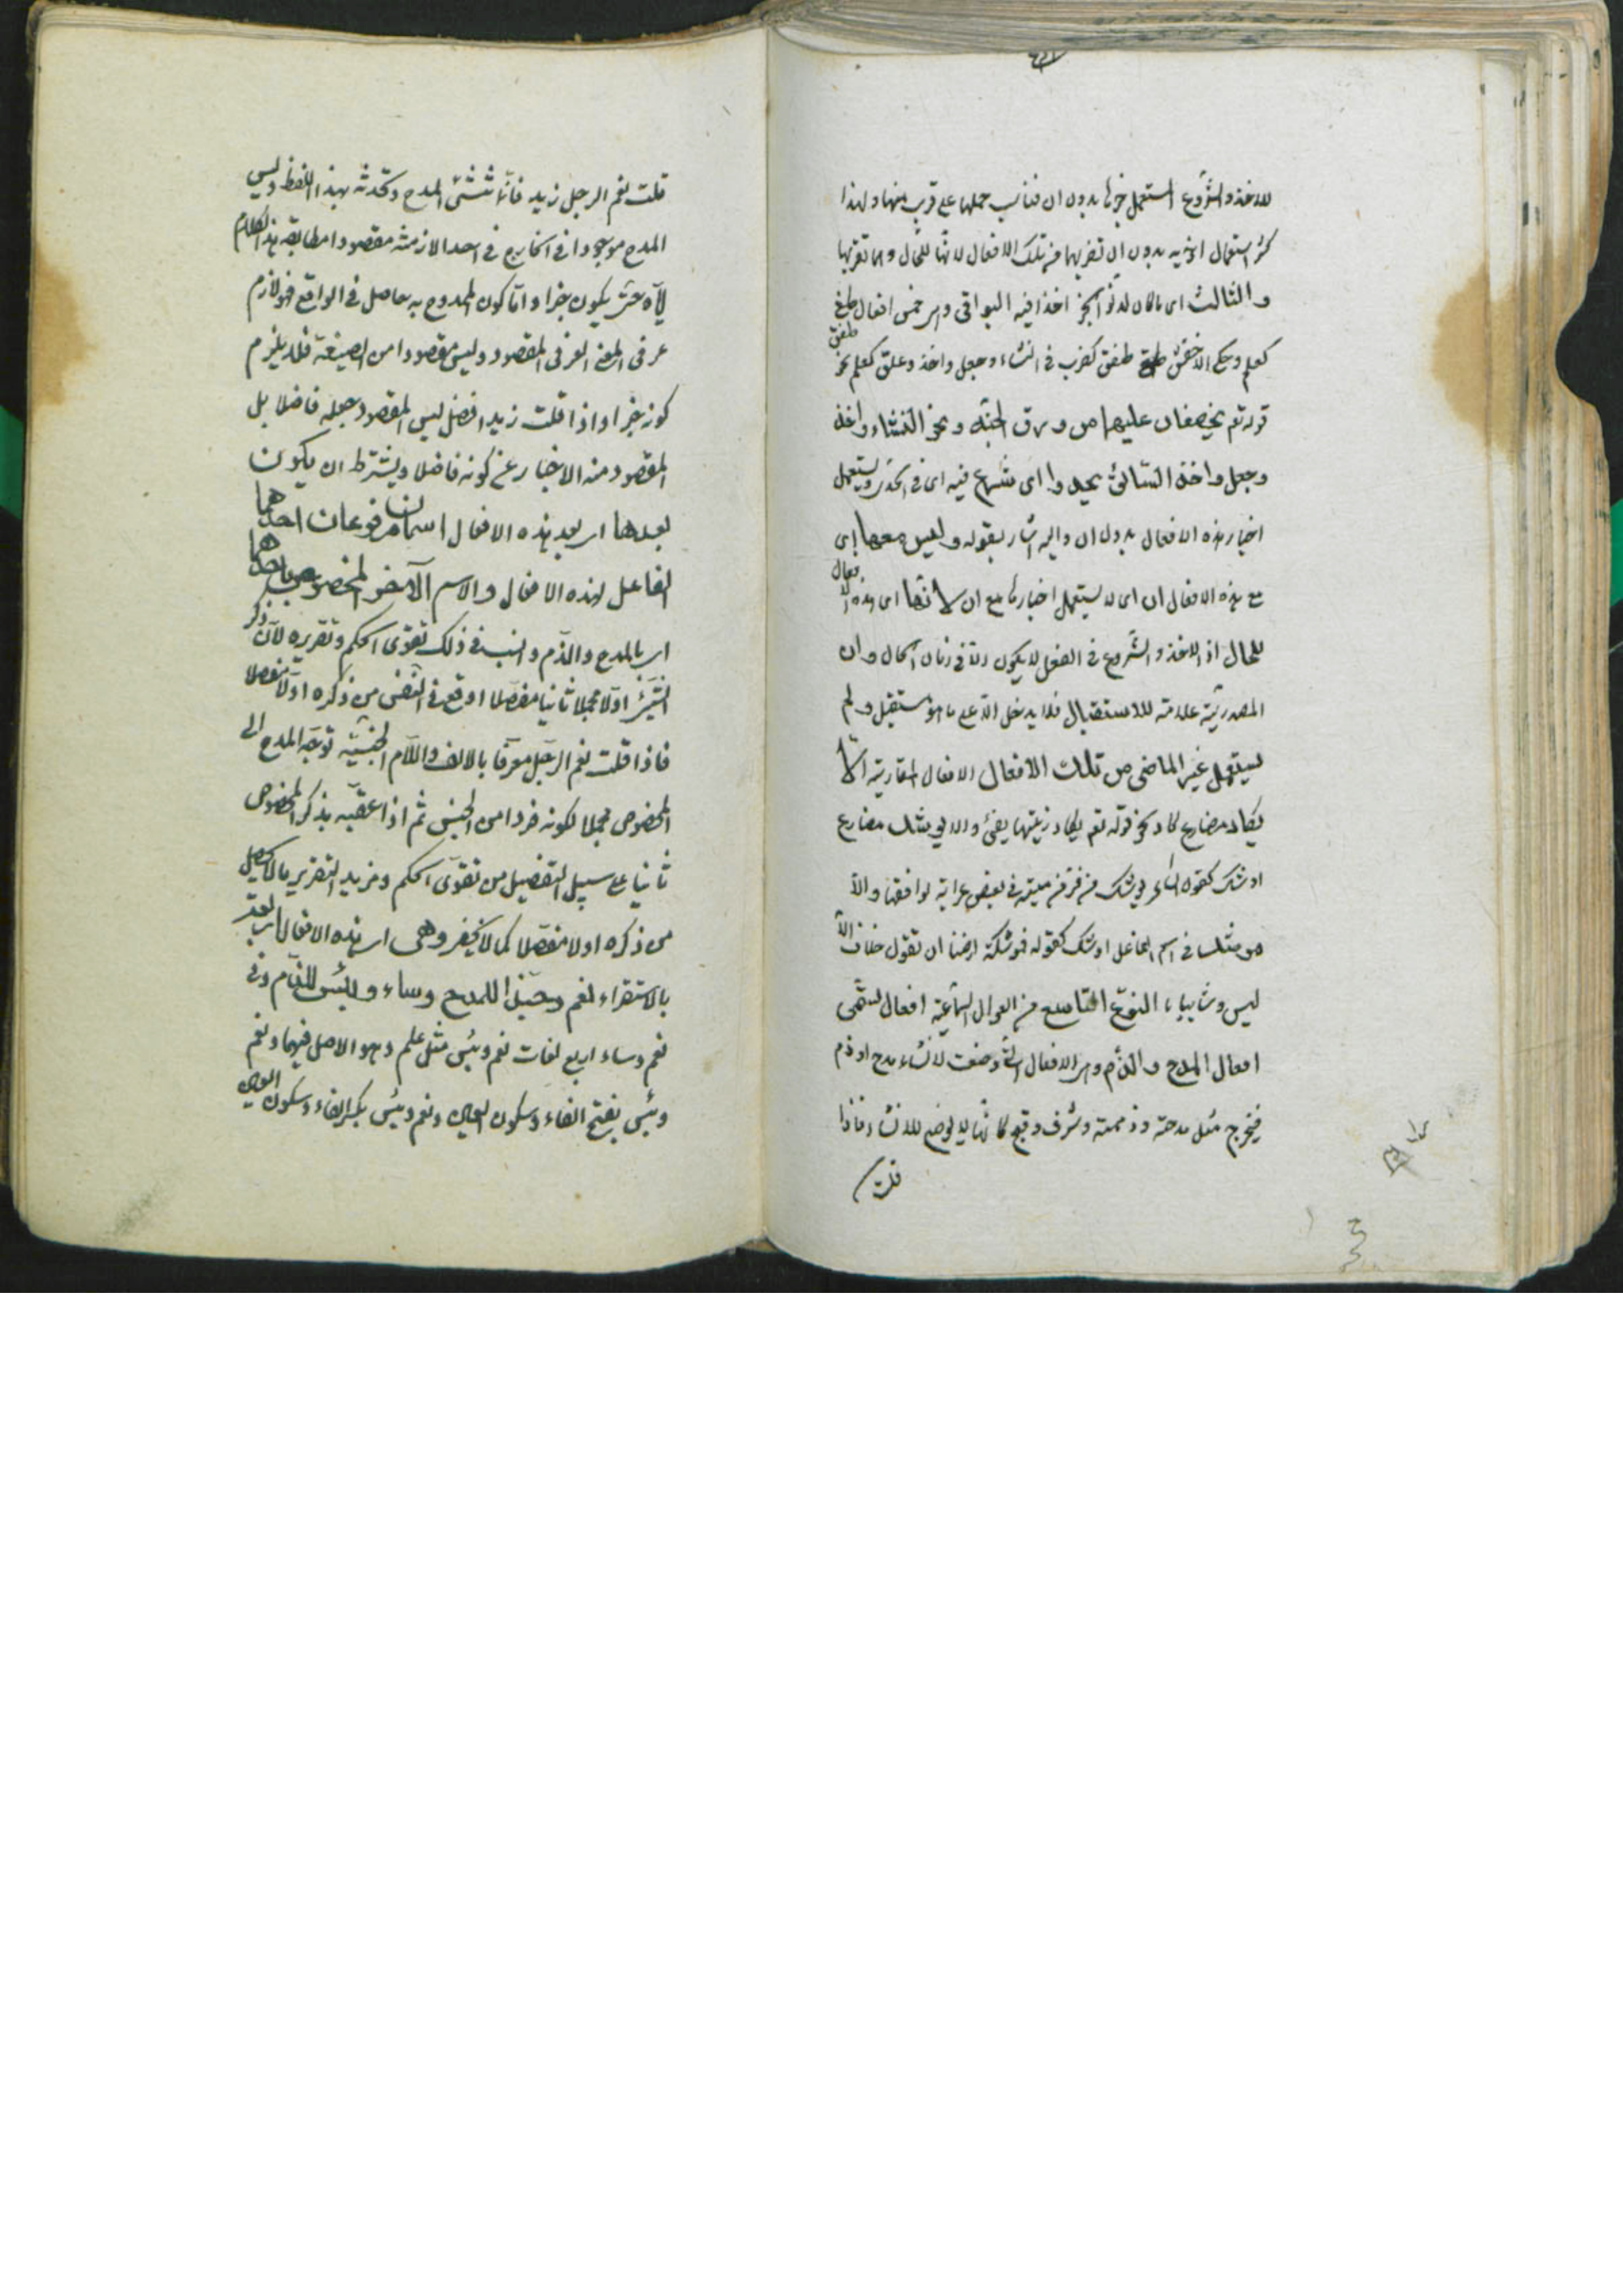 للاخذ والشروع استعمل خبرها بدون ان فناسب حملها على قرب منها ولهذا
كثر استعمال اخريه بدون ان تقريهما من تلك الافعال لانها للحال وما تقربها
والثالث اى ما كان لدنو الخبر اخذا فيه البواقى وهى خمس افعال طبق
كعلم وحكى الاخفش طفق كضرب فى انشاء وجعل واخذ وعلق كعلم نحو
قوله تع يخصفان عليهما من ورق الجنة ونحو انشاء واخذ
وجعل واخذ السائق يحدوا اى شرع فيه اى فى الحدو ويستعمل
اخبار هذه الافعال بدون ان واليه اشار بقوله وليس معها اى
مع هذه الافعال ان اى لا يستعمل اخبارها مع ان لانها اى هذه الافعال
للحال اذ الاخذ والشروع فى الفعل لا يكون الا فى زمان الحال وان
المصدرية علامة للاستقبال فلا يدخل الا على ما هو مستقبل ولم
يستعمل غير الماضى من تلك الافعال الافعال المقاربة الا
يكاد مضارع كاد نحو قوله تع يكاد زيتها يضئ والا يوشك مضارع
اوشك كقول الشاعر يوشك من فر من منيته فى بعض غراته يوافقها والا
موشك فى اسم الفاعل اوشك كقوله فموشكة ارضنا ان تقول خلاف الا
ليس وشابيبا النوع التاسع من العوامل السماعية افعال تسمى
افعال المدح والذم وهى الافعال التى وضعت لانشاء مدح او ذم
فيخرج مثل مدحته وذممته وشرف وقبح لانها لم توضع للانشاء فاذا
قلت
قلت نعم الرجل زيد فانما تنشئ المدح وتحدثه بهذا اللفظ وليس
المدح موجودا فى الخارج فى احد الازمنة مقصودا مطابقة هذا الكلام
اياه حتى يكون خبرا واما كون الممدوح به حاصل فى الواقع فهو لازم
عرفى للمعنى العرفى المقصود وليس مقصودا من الصيغة فلا يلزم
كونه خبرا واذا قلت زيد افضل ليس المقصود جعله فاضلا بل
المقصود منه الاخبار عن كونه فاضلا ويشترط ان يكون
بعدها اى بعد هذه الافعال اسمان مرفوعان احدهما
الفاعل لهذه الافعال والاسم الآخر المخصوص باحدهما
اى بالمدح والذم والسبب فى ذلك تقوى الحكم وتقريره لان ذكر
الشئ اولا مجملا ثانيا مفصلا اوقع فى النفس من ذكره اولا مفصلا
فاذا قلت نعم الرجل معرفا بالالف واللام الجنسية توجه المدح الى
المخصوص مجملا لكونه فردا من الجنس ثم اذا عقبه بذكر المخصوص
ثانيا على سبيل التفصيل من تقوى الحكم ومزيد التقرير ما لا يحصل
من ذكره اولا مفصلا كما لا يخفى وهى اى هذه الافعال اربعة
بالاستقراء نعم وحبذا للمدح وساء وبئس للذم وفى
نعم وساء اربع لغات نعم وبئس مثل علم وهو الاصل فيهما ونعم
وبئس بفتح الفاء وسكون العين ونعم وبئس بكسر الفاء وسكون العين